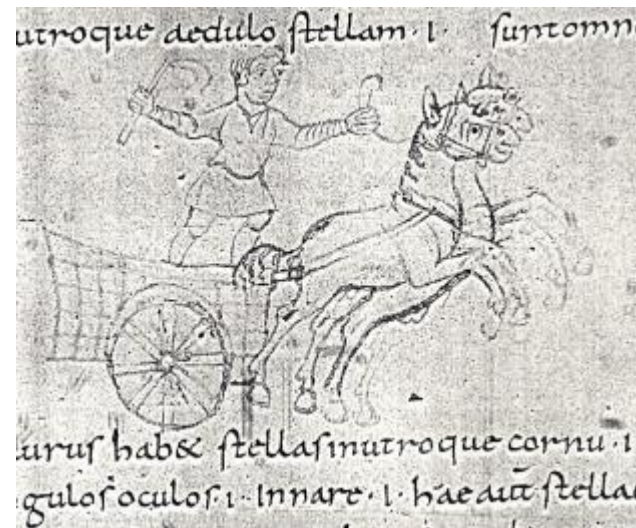 utroque aedulo stellam · I · suntomn
urus hab& stellasinutroque cornu · I
gulos oculos · I · Innare · I · hae aut̄ stella